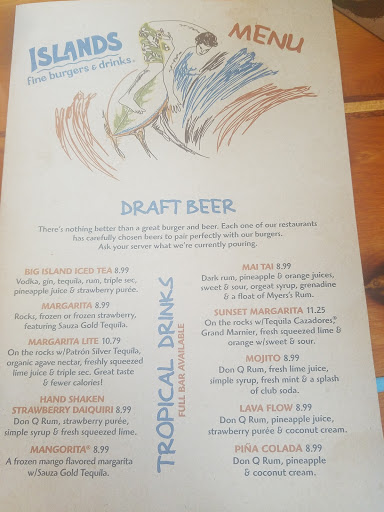 ISLANDS
fine burgers & drinks.
MENU
DRAFT BEER
There's nothing better than a great burger and beer. Each one of our restaurants
has carefully chosen beers to pair perfectly with our burgers.
Ask your server what we're currently pouring.
TROPICAL DRINKS
FULL BAR AVAILABLE
BIG ISLAND ICED TEA 8.99
Vodka, gin, tequila, rum, triple sec,
pineapple juice & strawberry purée.
MARGARITA 8.99
Rocks, frozen or frozen strawberry,
featuring Sauza Gold Tequila.
MARGARITA LITE 10.79
On the rocks w/Patrón Silver Tequila,
organic agave nectar, freshly squeezed
lime juice & triple sec. Great taste
& fewer calories!
HAND SHAKEN
STRAWBERRY DAIQUIRI 8.99
Don Q Rum, strawberry purée,
simple syrup & fresh squeezed lime.
MANGORITA® 8.99
A frozen mango flavored margarita
w/Sauza Gold Tequila.
MAI TAI 8.99
Dark rum, pineapple & orange juices,
sweet & sour, orgeat syrup, grenadine
& a float of Myers's Rum.
SUNSET MARGARITA 11.25
On the rocks w/Tequila Cazadores,®
Grand Marnier, fresh squeezed lime &
orange w/sweet & sour.
MOJITO 8.99
Don Q Rum, fresh lime juice,
simple syrup, fresh mint & a splash
of club soda.
LAVA FLOW 8.99
Don Q Rum, pineapple juice,
strawberry purée & coconut cream.
PIÑA COLADA 8.99
Don Q Rum, pineapple
& coconut cream.